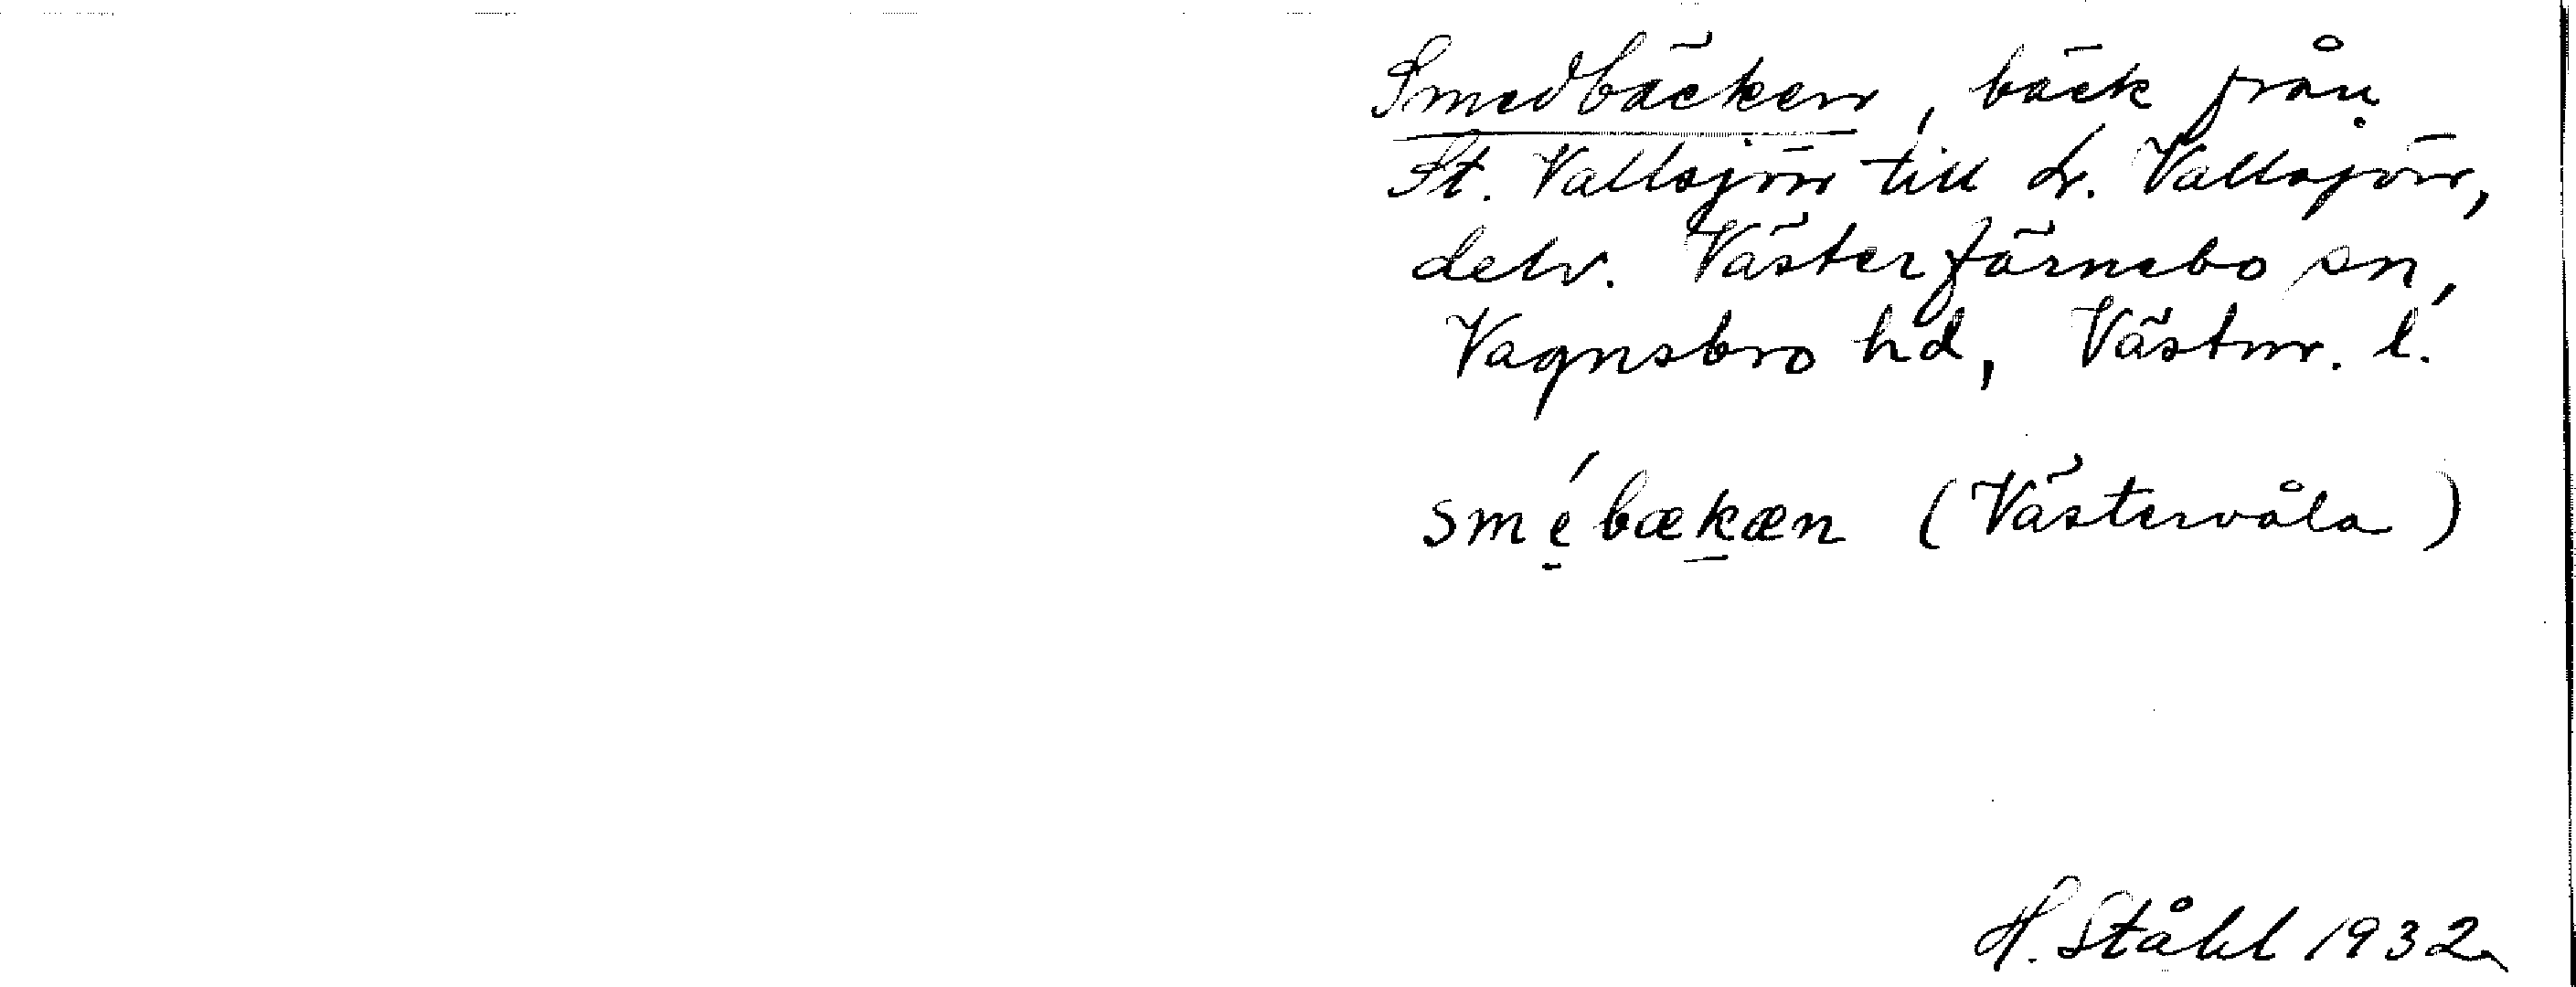 Smedbäcken, bäck från
St. Vallsjön till L. Vallsjön,
delv. Västerfärnebo sn,
Vagnsbro hd, Västm. l.
smé̠bæk̠æn (Västervåla)
H. Ståhl 1932